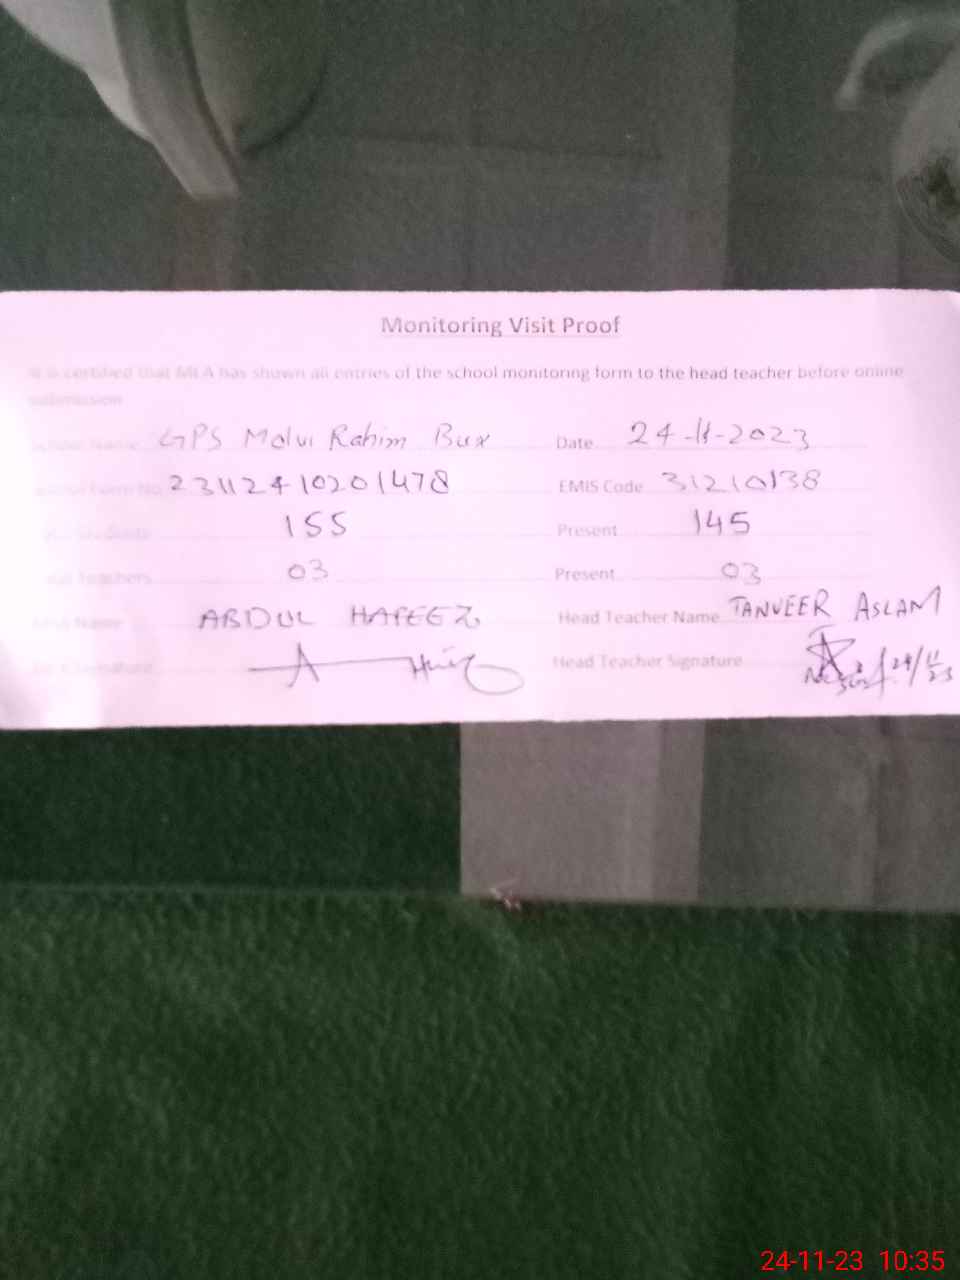 Monitoring Visit Proof
It is certified that MEA has shown all entries of the school monitoring form to the head teacher before online
submission
School Name GPS Molvi Rahim Bux Date 24-11-2023
Form No 23112410201478 EMIS Code 31210138
Students 155 Present 145
Teachers 03 Present 03
Name ABDUL HAFEEZ Head Teacher Name TANVEER ASLAM
Signature Head Teacher Signature 24/11/23
24-11-23 10:35